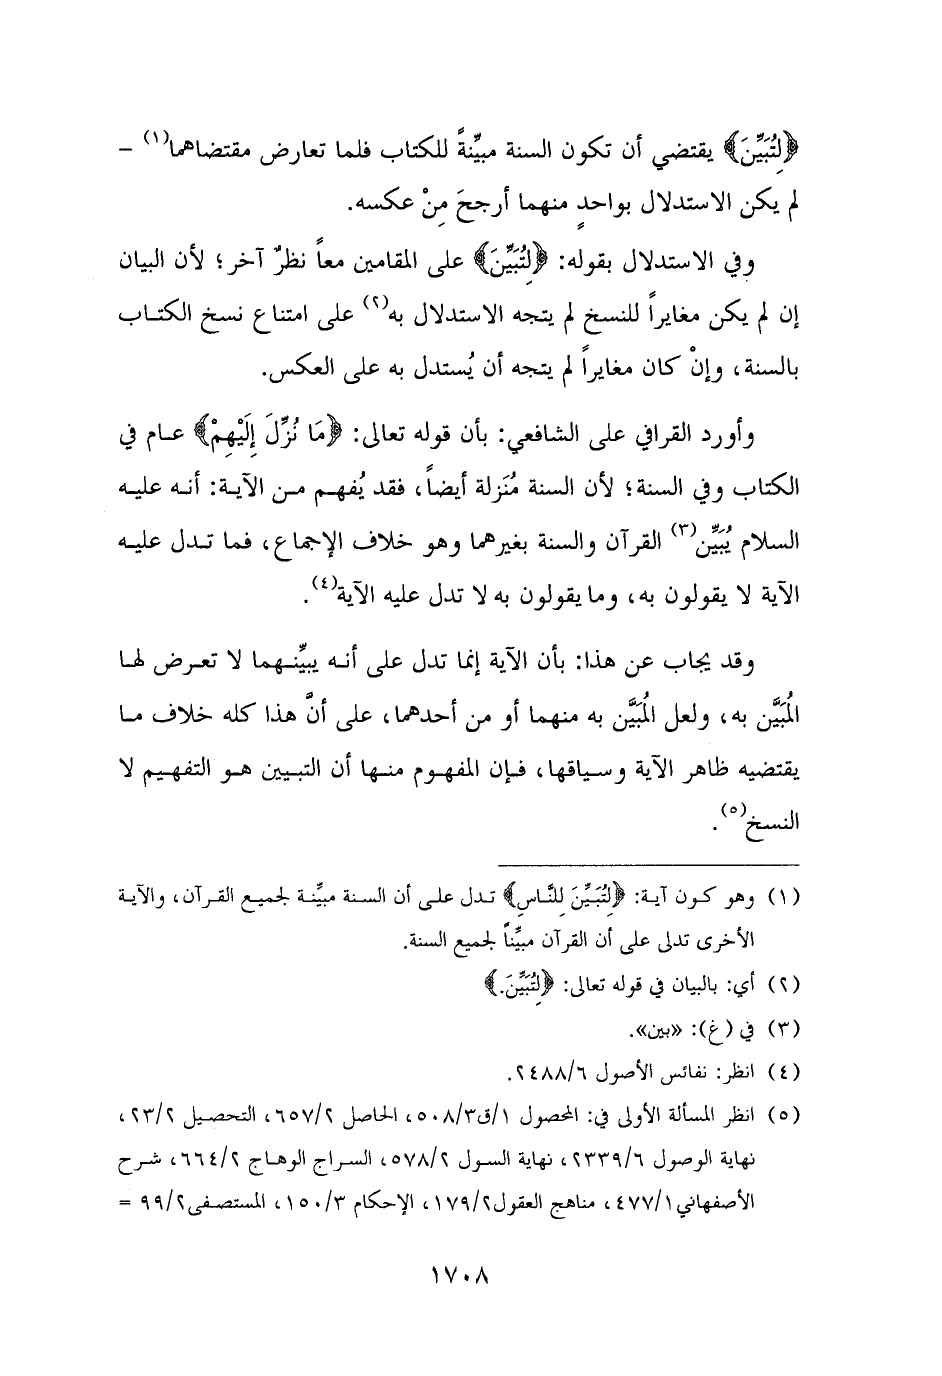 ﴿لِتُبَيِّنَ﴾ يقتضي أن تكون السنة مبيِّنةً للكتاب فلما تعارض مقتضاهما(١) –
لم يكن الاستدلال بواحدٍ منهما أرجحَ مِنْ عكسه.
وفي الاستدلال بقوله: ﴿لِتُبَيِّنَ﴾ على المقامين معاً نظرٌ آخر؛ لأن البيان
إن لم يكن مغايراً للنسخ لم يتجه الاستدلال به(٢) على امتناع نسخ الكتاب
بالسنة، وإنْ كان مغايراً لم يتجه أن يُستدل به على العكس.
وأورد القرافي على الشافعي: بأن قوله تعالى: ﴿مَا نُزِّلَ إِلَيْهِمْ﴾ عام في
الكتاب وفي السنة؛ لأن السنة مُنَزلة أيضاً، فقد يُفهم من الآية: أنه عليه
السلام يُبَيِّن(٣) القرآن والسنة بغيرهما وهو خلاف الإجماع، فما تدل عليه
الآية لا يقولون به، وما يقولون به لا تدل عليه الآية(٤).
وقد يجاب عن هذا: بأن الآية إنما تدل على أنه يبيِّنهما لا تعرض لها
المُبَيَّن به، ولعل المُبَيَّن به منهما أو من أحدهما، على أنَّ هذا كله خلاف ما
يقتضيه ظاهر الآية وسياقها، فإن المفهوم منها أن التبيين هو التفهيم لا
النسخ(٥).
(١) وهو كون آية: ﴿لِتُبَيِّنَ لِلنَّاسِ﴾ تدل على أن السنة مبيِّنة لجميع القرآن، والآية
الأخرى تدلى على أن القرآن مبيِّناً لجميع السنة.
(٢) أي: بالبيان في قوله تعالى: ﴿لِتُبَيِّنَ.﴾
(٣) في (غ): «بين».
(٤) انظر: نفائس الأصول ٢٤٨٨/٦.
(٥) انظر المسألة الأولى في: المحصول ١/ق٥٠٨/٣، الحاصل ٦٥٧/٢، التحصيل ٢٣/٢،
نهاية الوصول ٢٣٣٩/٦، نهاية السول ٥٧٨/٢، السراج الوهاج ٦٦٤/٢، شرح
الأصفهاني٤٧٧/١، مناهج العقول١٧٩/٢، الإحكام ١٥٠/٣، المستصفى٩٩/٢ =
١٧٠٨